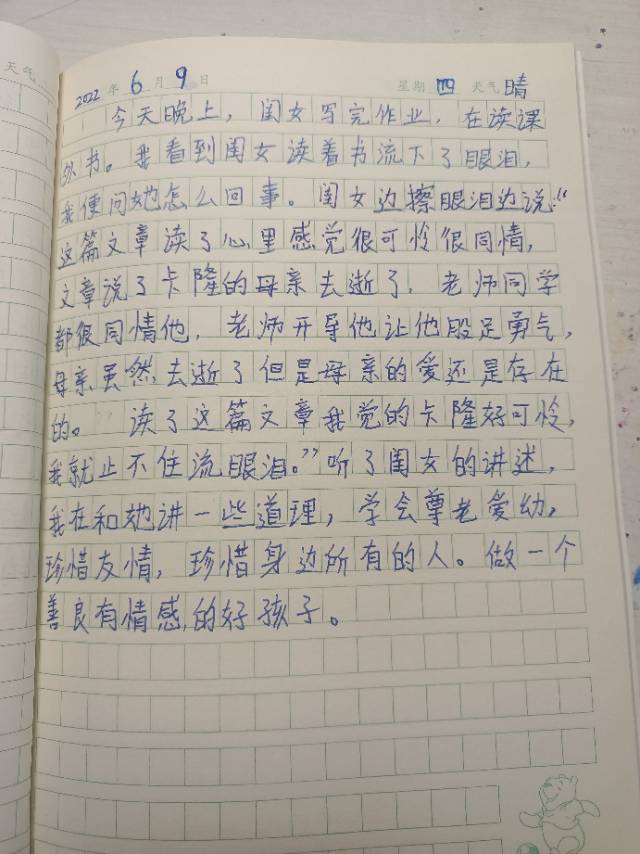 天气
2022 年 6 月 9 日 星期 四 天气 晴
今天晚上，闺女写完作业，在读课
外书。我看到闺女读着书流下了眼泪，
我便问她怎么回事。闺女边擦眼泪边说：“
这篇文章读了心里感觉很可怜很同情，
文章说了卡隆的母亲去逝了，老师同学
都很同情他，老师开导他让他股足勇气，
母亲虽然去逝了但是母亲的爱还是存在
的。读了这篇文章我觉的卡隆好可怜，
我就止不住流眼泪。”听了闺女的讲述，
我在和她讲一些道理，学会尊老爱幼，
珍惜友情，珍惜身边所有的人。做一个
善良有情感的好孩子。